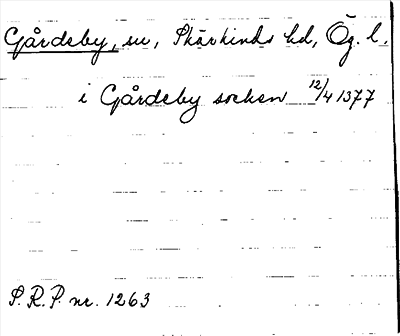 Gårdeby, sn, Skärkinds hd, Ög. l.
i Gårdeby socken 12/4 1377
S.R.P. nr. 1263